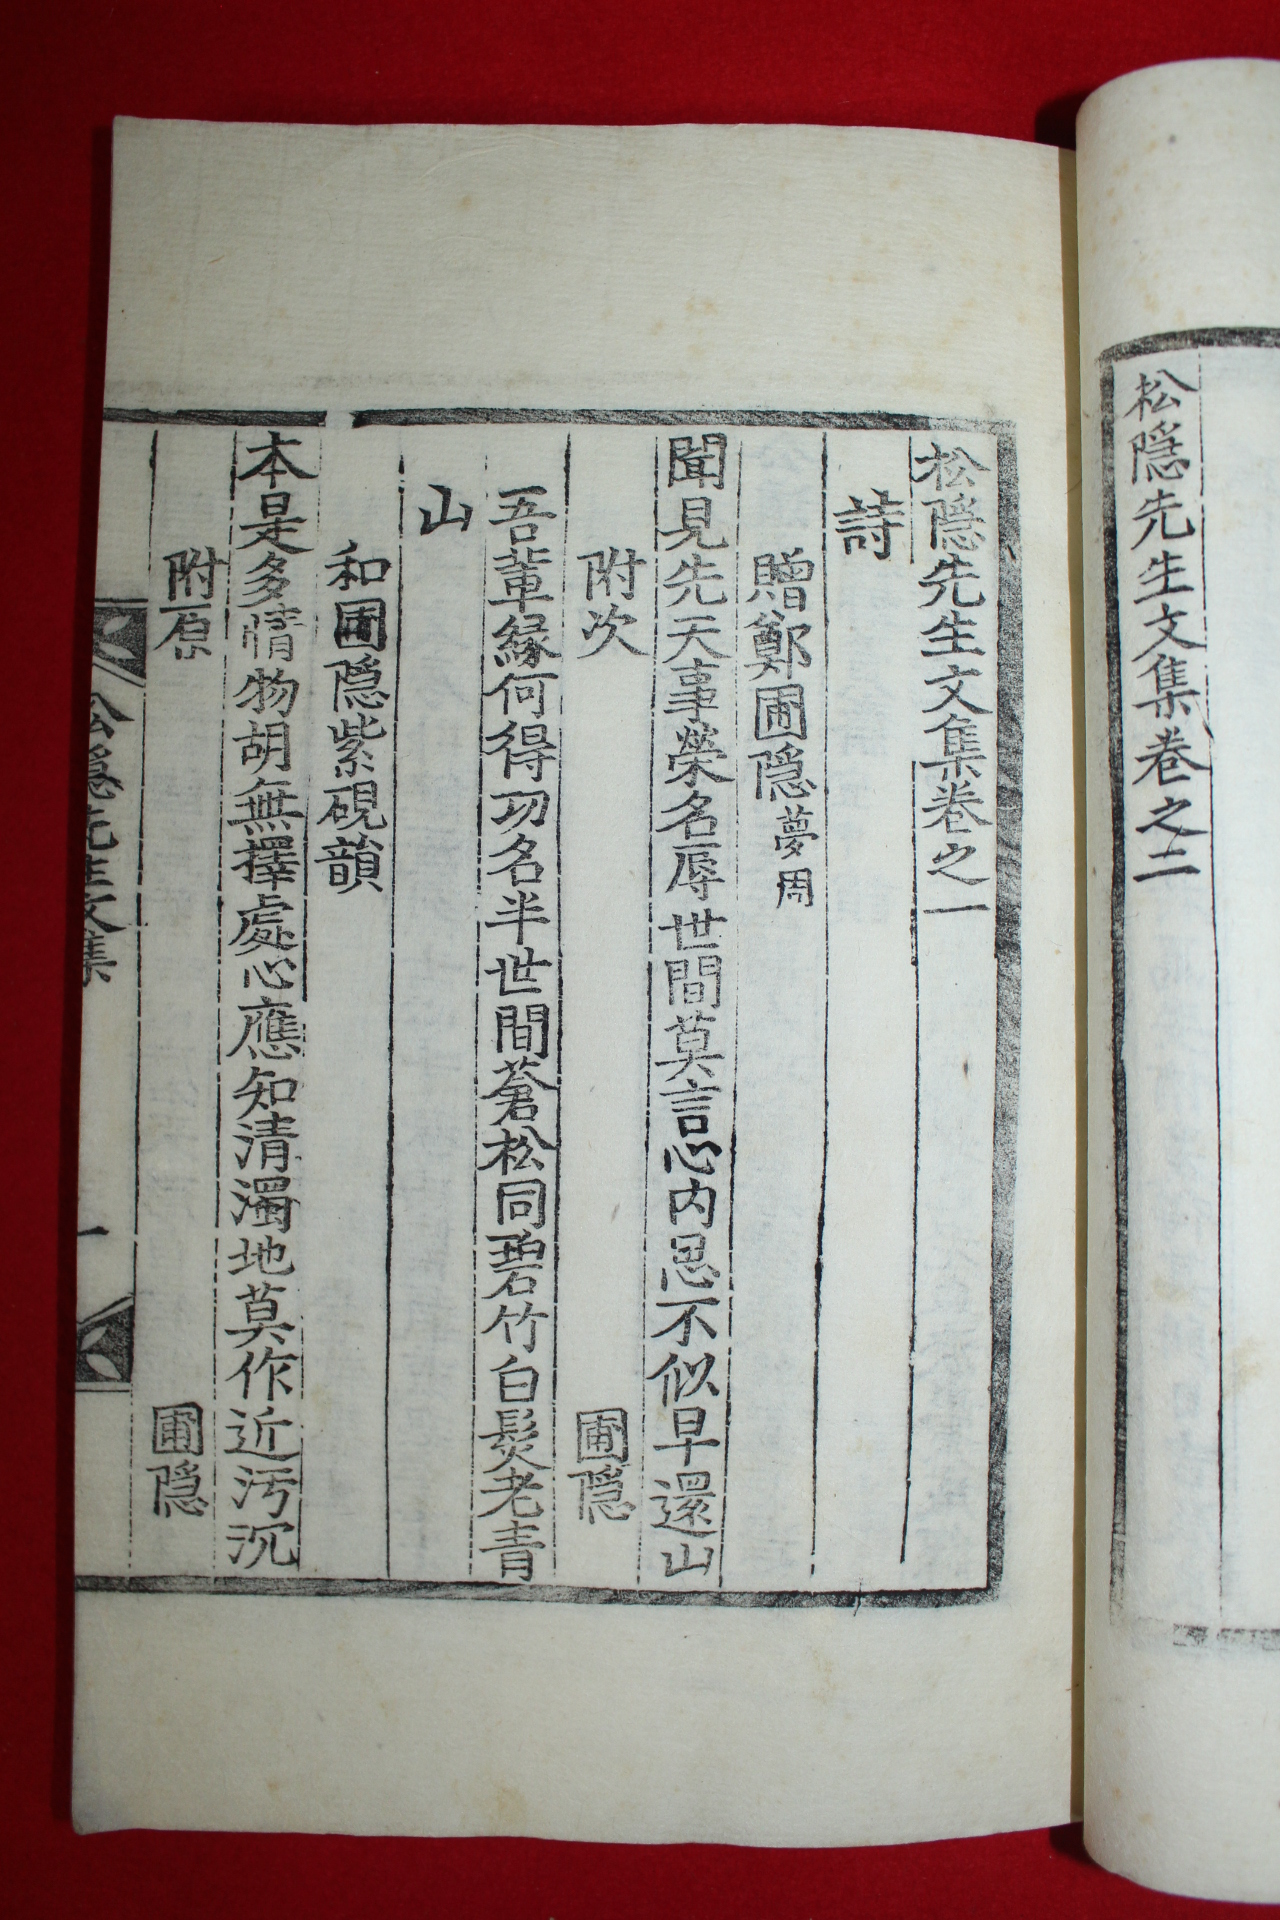 松隱先生文集卷之二
松隱先生文集卷之一
詩
贈鄭圃隱夢周
聞見先天事榮名辱世間莫言心內思不似早還山
附次
圃隱
吾輩緣何得功名半世間蒼松同碧竹白髮老青
山
和圃隱紫硯韻
本是多情物胡無擇處心應知清濁地莫作近汚沉
附原
圃隱
松隱先生文集
一